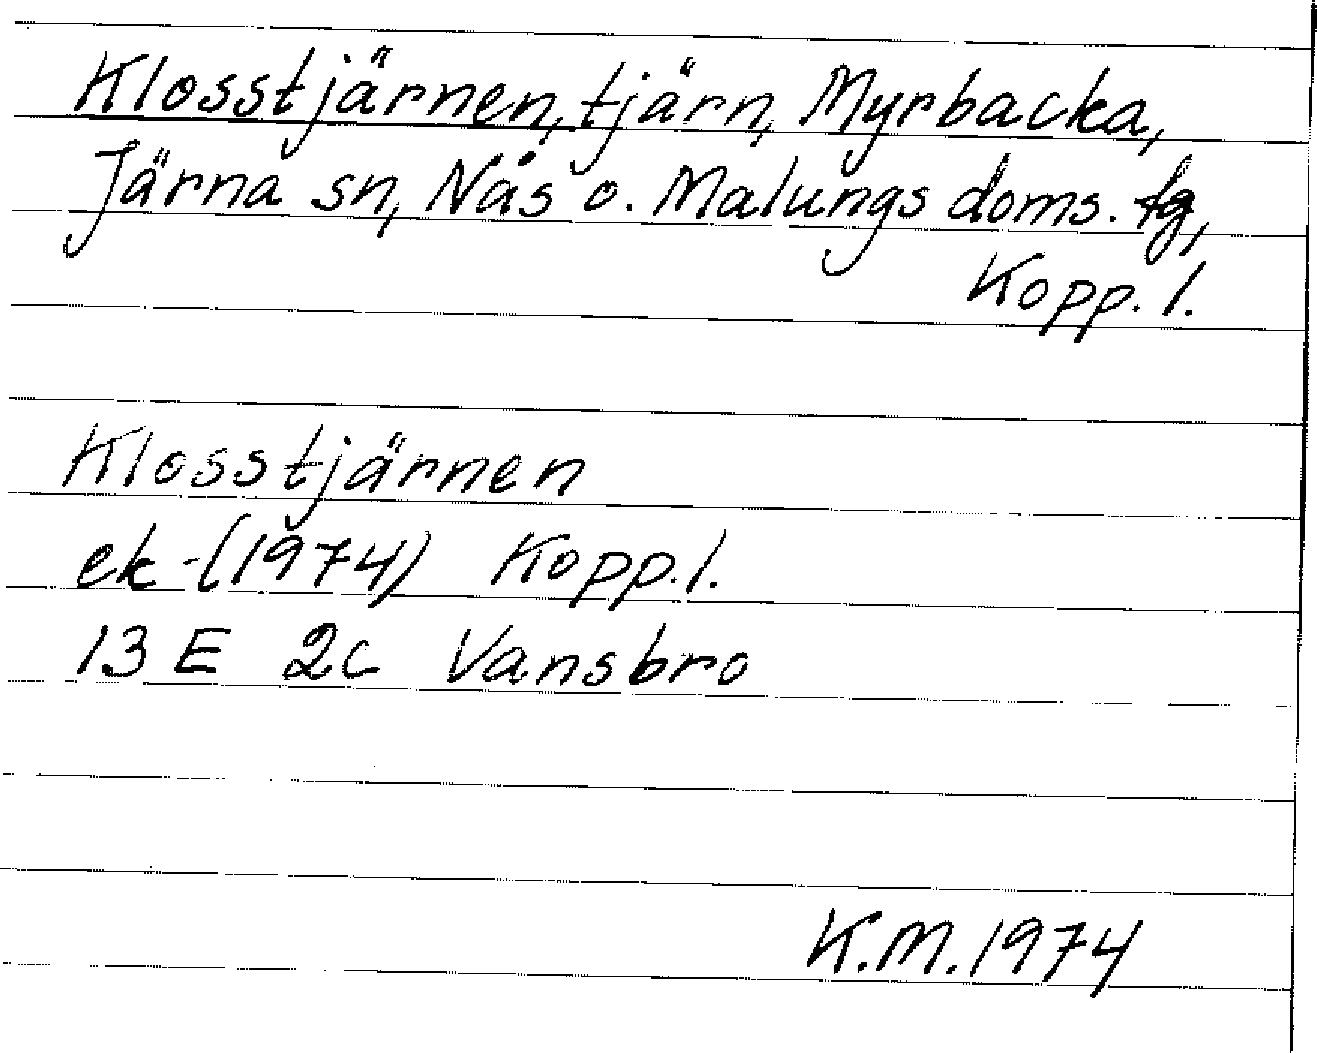 Klosstjärnen, tjärn, Myrbacka,
Järna sn, Nås o. Malungs doms. tg,
Kopp. l.
Klosstjärnen
ek (1974) Kopp. l.
13 E 2c Vansbro
K.M. 1974